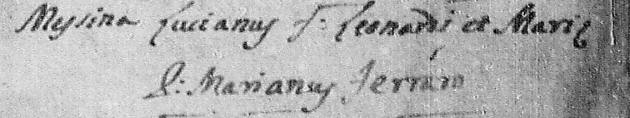 Messina Lucianus F: Leonardi et Mariæ
P: Marianus Ferraro